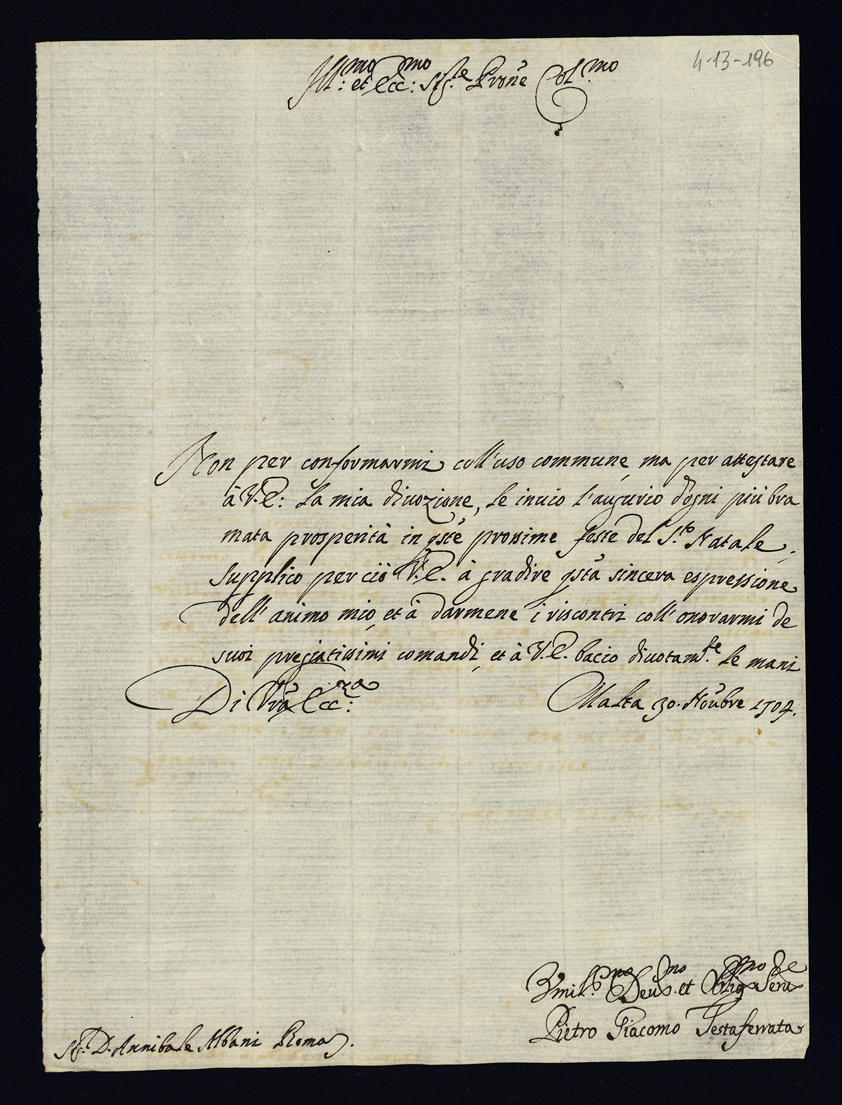 4-13-196
Ill:mo et Ecc:mo Sig:re Prone Col:mo
Non per conformarmi coll'uso commune, ma per attestare
à V.E: la mia divozione, le invio l'augurio d'ogni più bra
mata prosperità in qste prossime feste del S.to Natale.
Supplico perciò V.E. à gradire qsta sincera espressione
dell'animo mio, et à darmene i riscontri coll'onorarmi de
suoi pregiatissimi comandi, et à V.E. bacio divotam.te le mani
Di Vra Ecc:za Malta 30. Novbre 1704.
Vmil.mo Deu.mo et Oblig.mo Seru.re
Pietro Giacomo Testaferrata
Sig.r D. Annibale Albani Roma